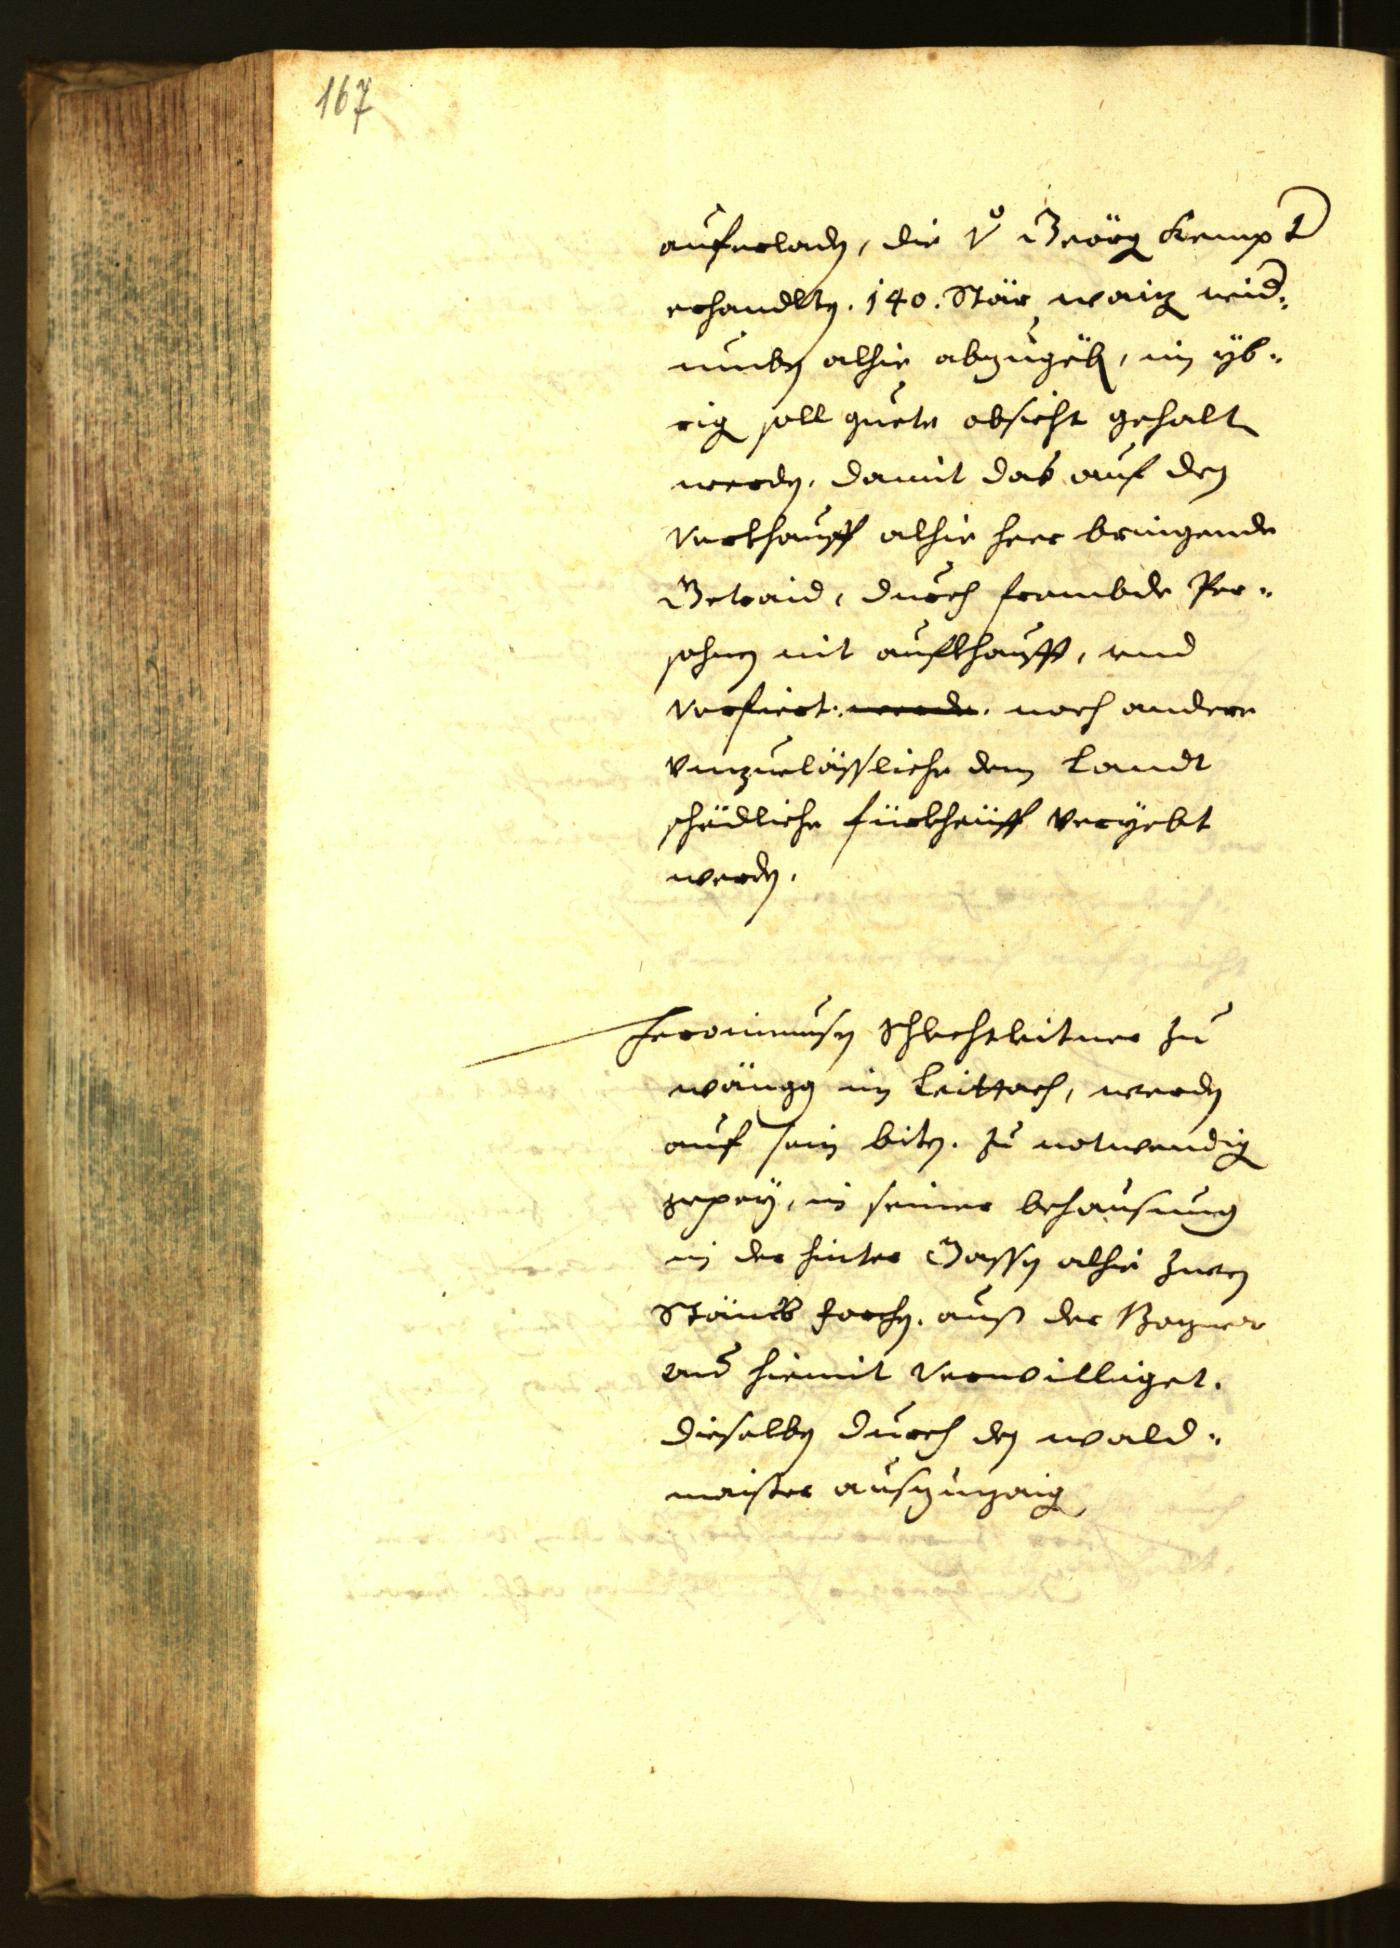 167
auferladen, die vo Geörg Kempt
erhandlten. 140. Stär waiz wid,
umben alhie abzugeben, im yb-
rig soll guete obsicht gehalten
werden, damit das auf den
Verkhauff alhie heer bringende
Getraid, durch frembde Per-
sohnen nit aufkhaufft, und
verfiert. werde. noch andere
Vnzuelässliche dem Landt
schädliche fürkheüff Veryebt
werden.
Jeronimusen Schlechtleitner zu
wängg in Leittach, werden
auf sein biten. zu notwendig
gepey, in seiner behausung
in der hinter Gassen alhie zwen
Stämb forchen. auß der
aud hiemit Verwilliget.
dieselben durch den wald-
maister auszuzaig